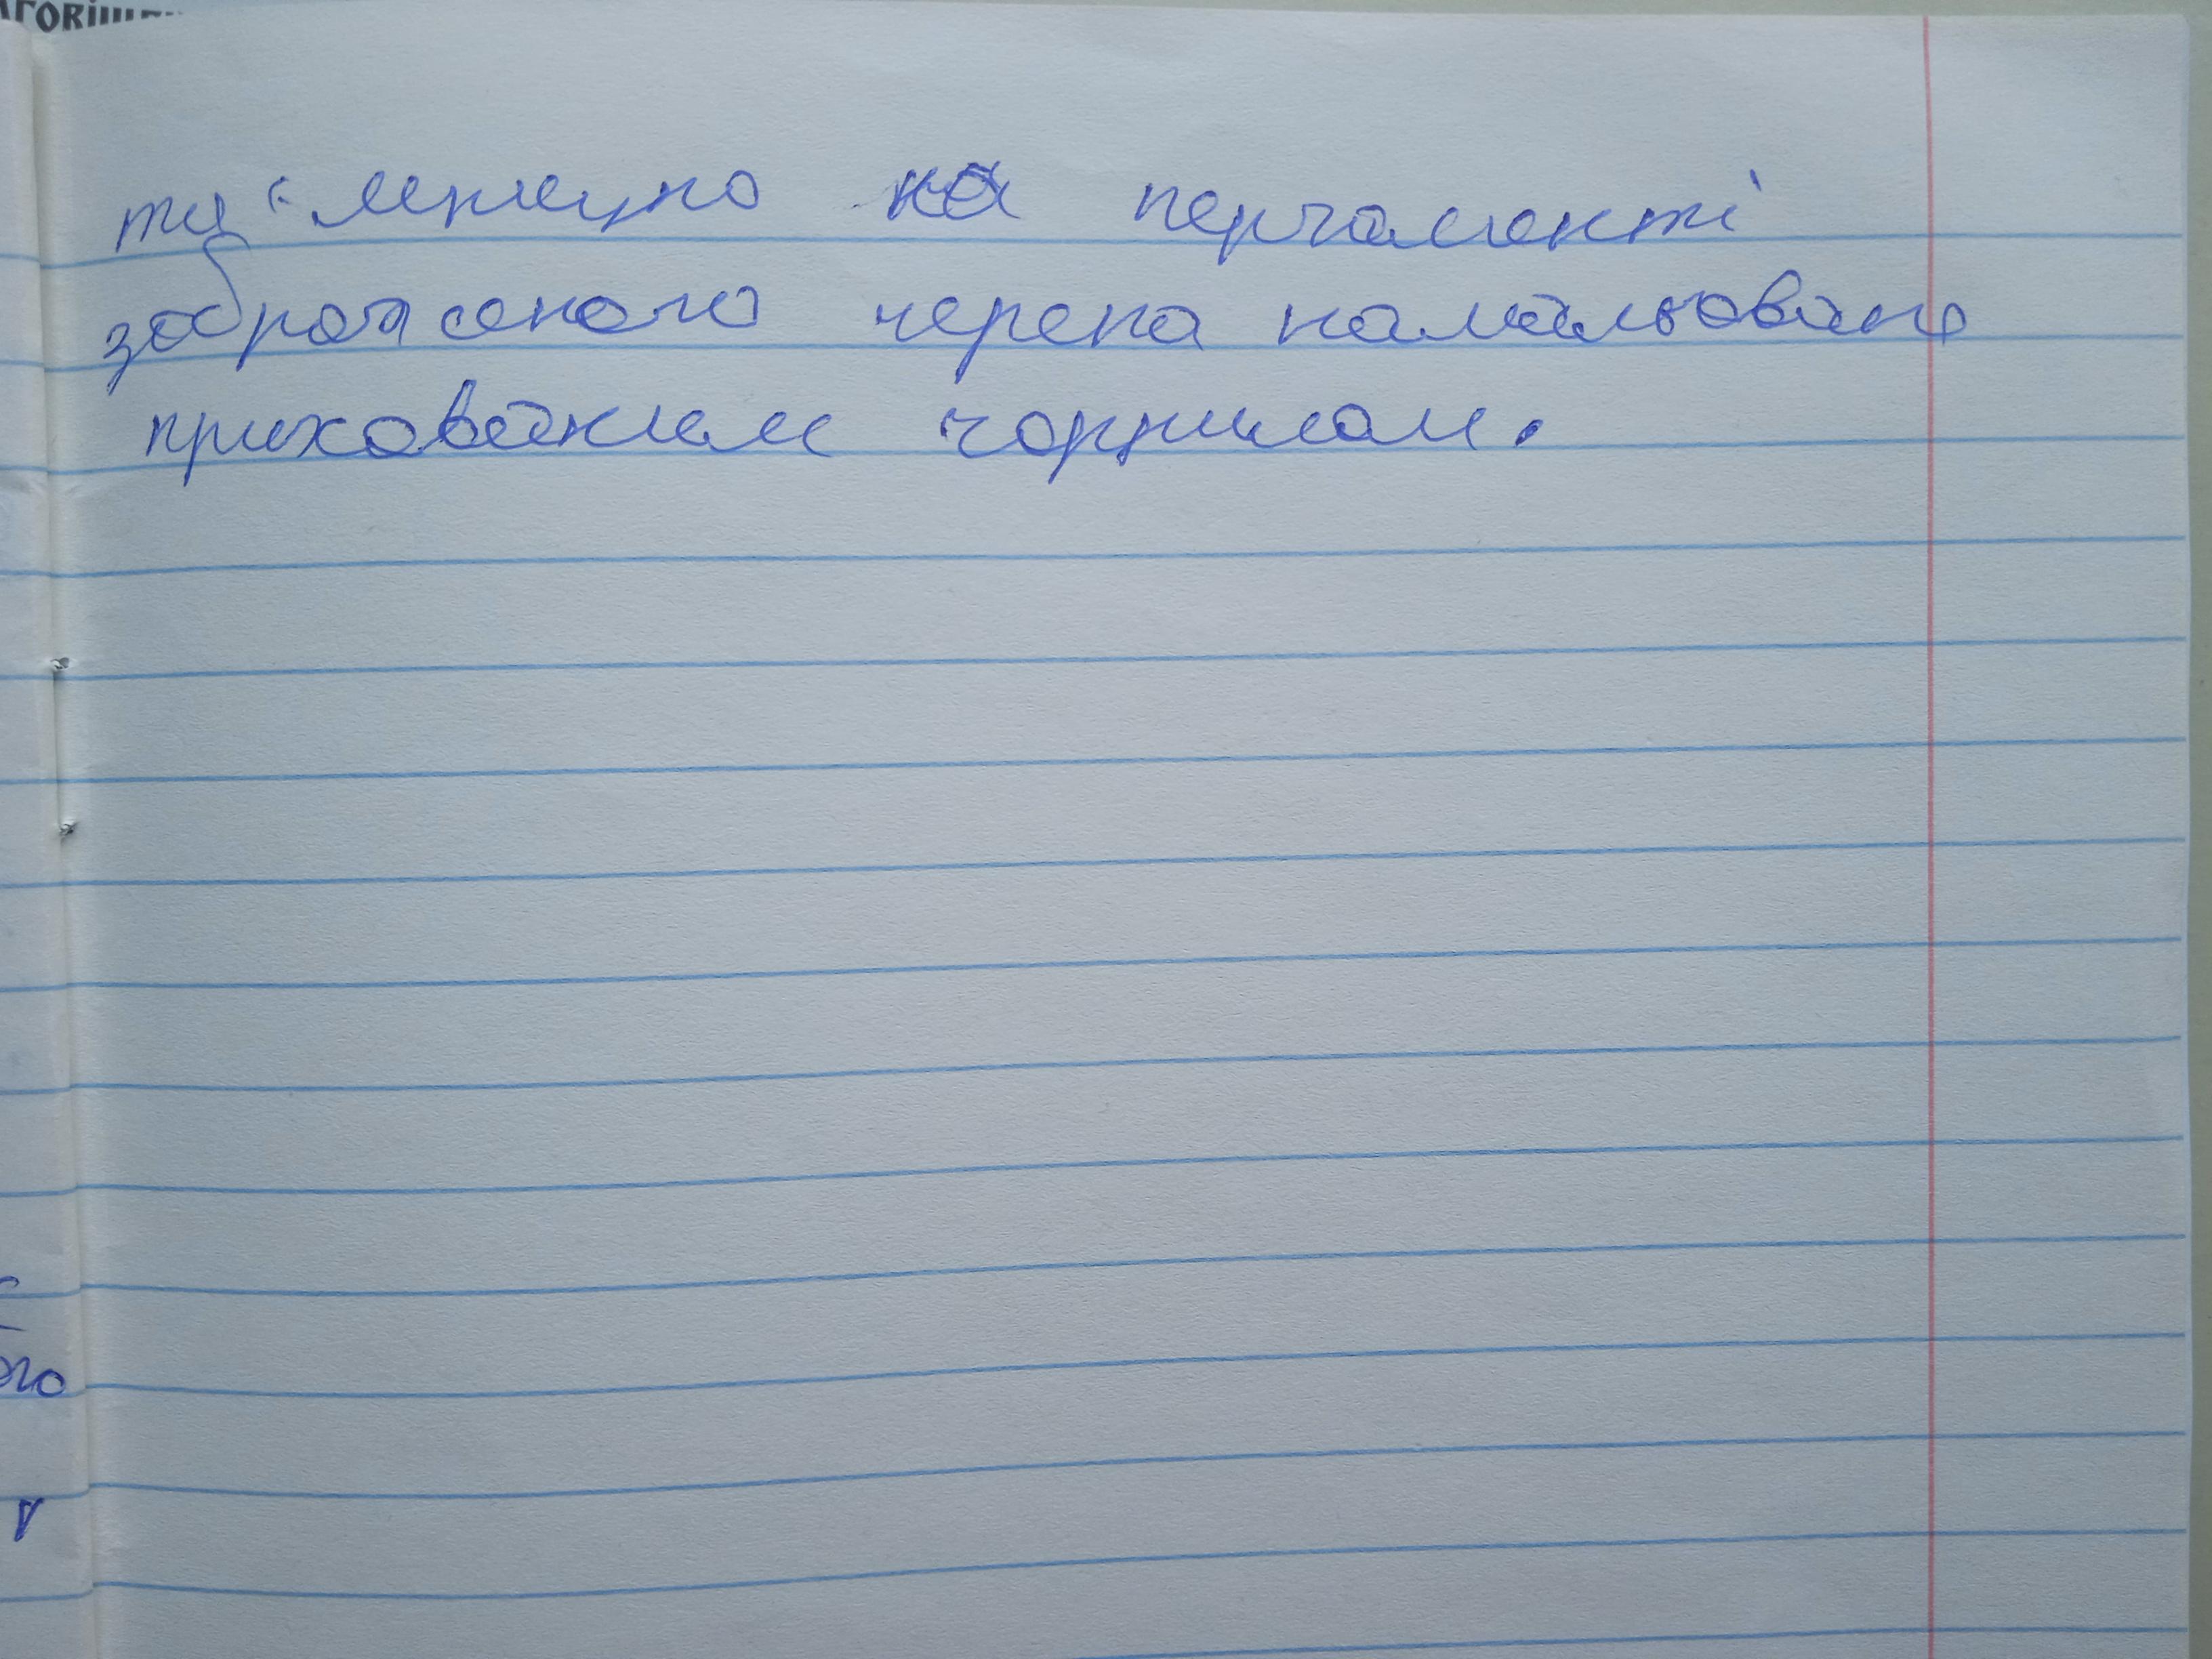 на пергаменті
зображеного черепа намальовано
прихованим чорнилом.
ого